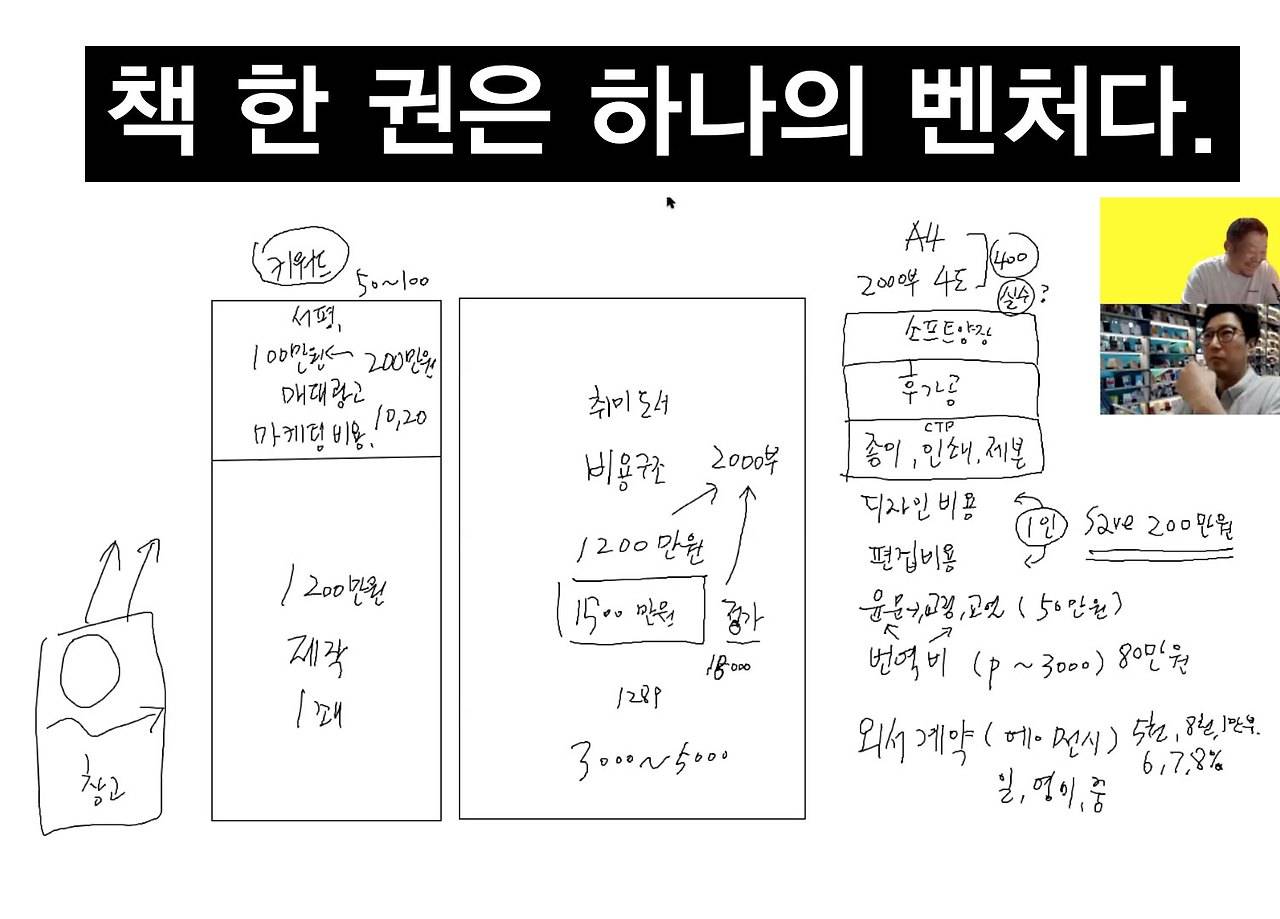 책 한 권은 하나의 벤처다.
키워드
50~100
서평,
100만원← 200만원
매대광고
마케팅 비용, 10,20
1200만원
제작
1쇄
창고
취미도서
비용구조 2000부
1200만원
1500만원 정가
18000
128P
3000~5000
A4
200부 4도
400
실수?
소프트양장
후가공
CTP
종이, 인쇄, 제본
디자인 비용
1인 Save 200만원
편집비용
윤문, 교정, 교열 (50만원)
번역비 (P ~3000) 80만원
외서 계약 (에이전시) 5천, 8천, 1만부.
6, 7, 8%
일, 영미, 중